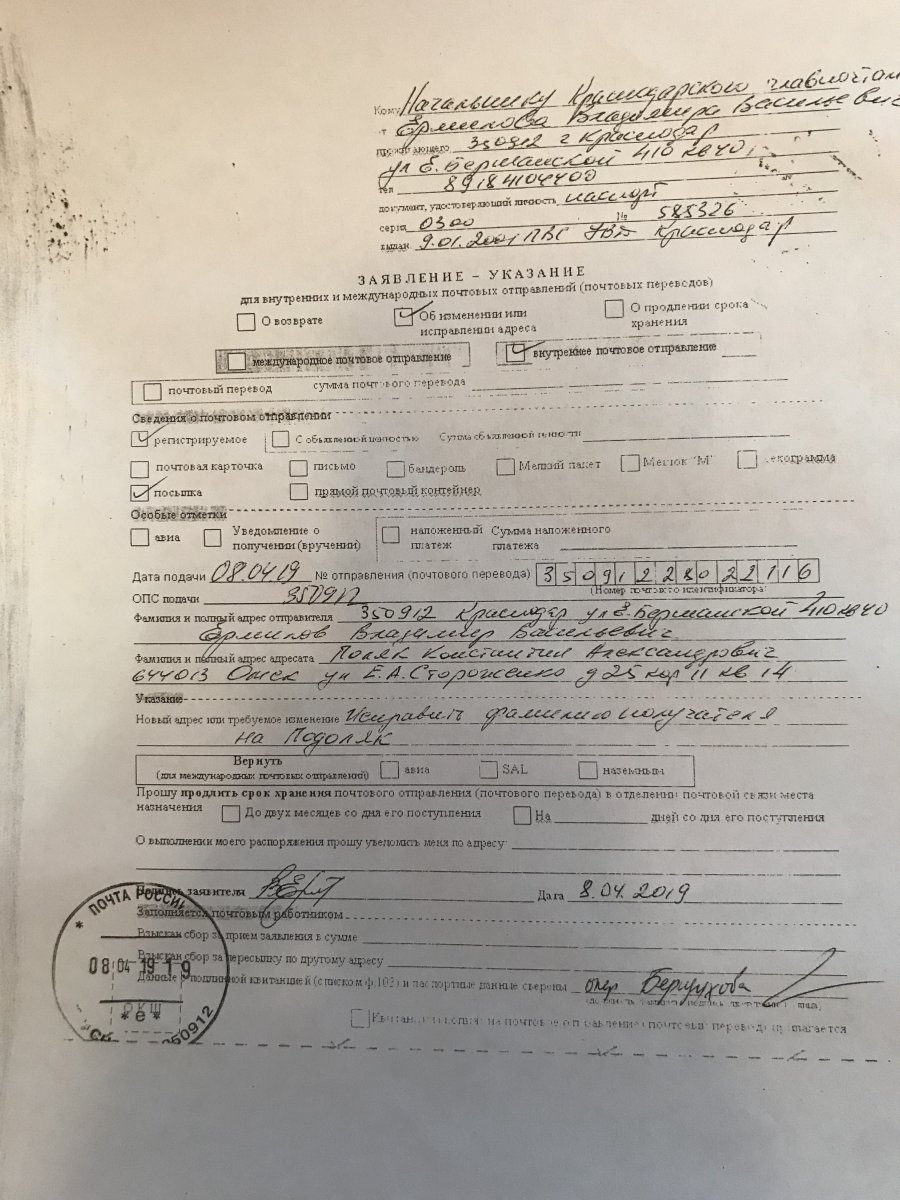 Кому Начальнику Краснодарского главпочтам
т Ермилова Владимира Васильевич
проживающего 350912 г Краснодар
ул Е.Бершанской 410 кв 40,
тел 89184104400
документ, удостоверяющий личность паспорт
серия 0300 № 585326
выдан 9.01.2001 ПВС УВД Краснодар
ЗАЯВЛЕНИЕ – УКАЗАНИЕ
для внутренних и международных почтовых отправлений (почтовых переводов)
О возврате Об изменении или исправлении адреса О продлении срока хранения
международное почтовое отправление внутреннее почтовое отправление
почтовый перевод сумма почтового перевода
Сведения о почтовом отправлении
регистрируемое С объявленной ценностью Сумма объявленной ценности
почтовая карточка письмо бандероль Мелкий пакет Мешок "М" секограмма
посылка прямой почтовый контейнер
Особые отметки
авиа Уведомление о получении (вручении) наложенный платеж Сумма наложенного платежа
Дата подачи 08.04 19 № отправления (почтового перевода) 35091228022116
(Номер почтового идентификатора)
ОПС подачи 350912
Фамилия и полный адрес отправителя 350912 Краснодар ул Е.Бершанской 410 кв 40
Ермилов Владимир Васильевич
Фамилия и полный адрес адресата Поляк Константин Александрович
644013 Омск ул Е.А.Стороженко д 25 кор 11 кв 14
Указание
Новый адрес или требуемое изменение Исправить фамилию получателя
на Подоляк
Вернуть
(для международных почтовых отправлений) авиа SAL наземным
Прошу продлить срок хранения почтового отправления (почтового перевода) в отделении почтовой связи места
назначения До двух месяцев со дня его поступления На дней со дня его поступления
О выполнении моего распоряжения прошу уведомить меня по адресу:
Подпись заявителя Дата 8.04.2019
Заполняется почтовым работником
Взыскан сбор за прием заявления в сумме
Взыскан сбор за пересылку по другому адресу
Данные с подлинной квитанцией (списком ф.103) и паспортные данные сверены опер
Квитанции на почтовое отправление (почтовый перевод) прилагается
* ПОЧТА РОССИИ
08 04 19 19
* е *
350912